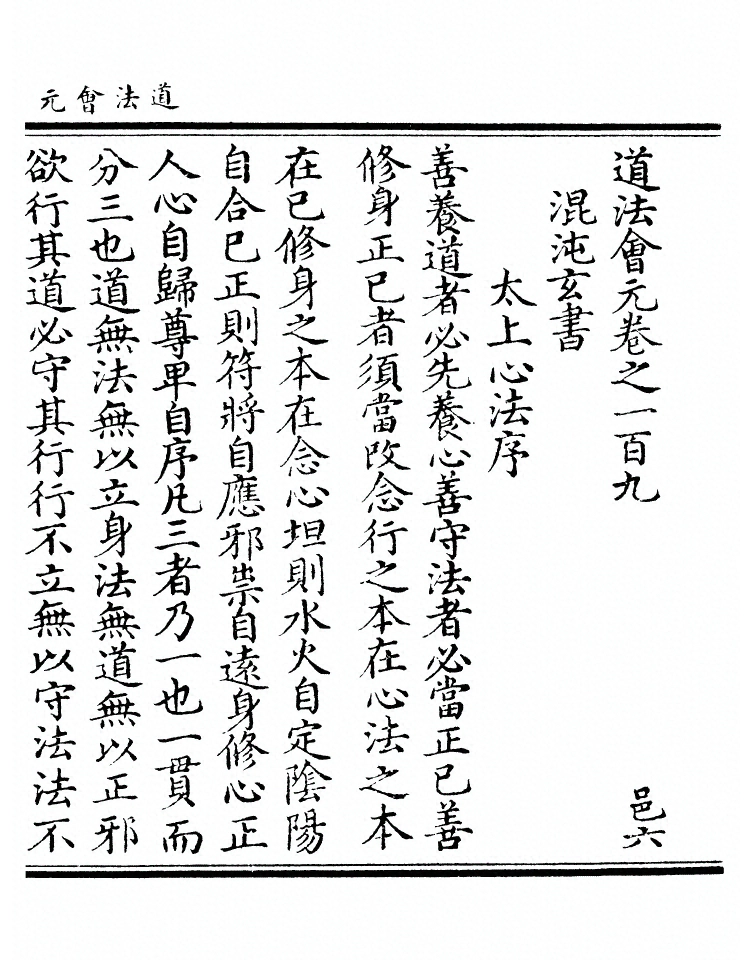 道法會元
道法會元卷之一百九
邑六
混沌玄書
太上心法序
善養道者必先養心善守法者必當正已善
修身正已者須當改念行之本在心法之本
在已修身之本在念心坦則水火自定陰陽
自合已正則符將自應邪祟自遠身修心正
人心自歸尊卑自序凡三者乃一也一貫而
分三也道無法無以立身法無道無以正邪
欲行其道必守其行行不立無以守法法不